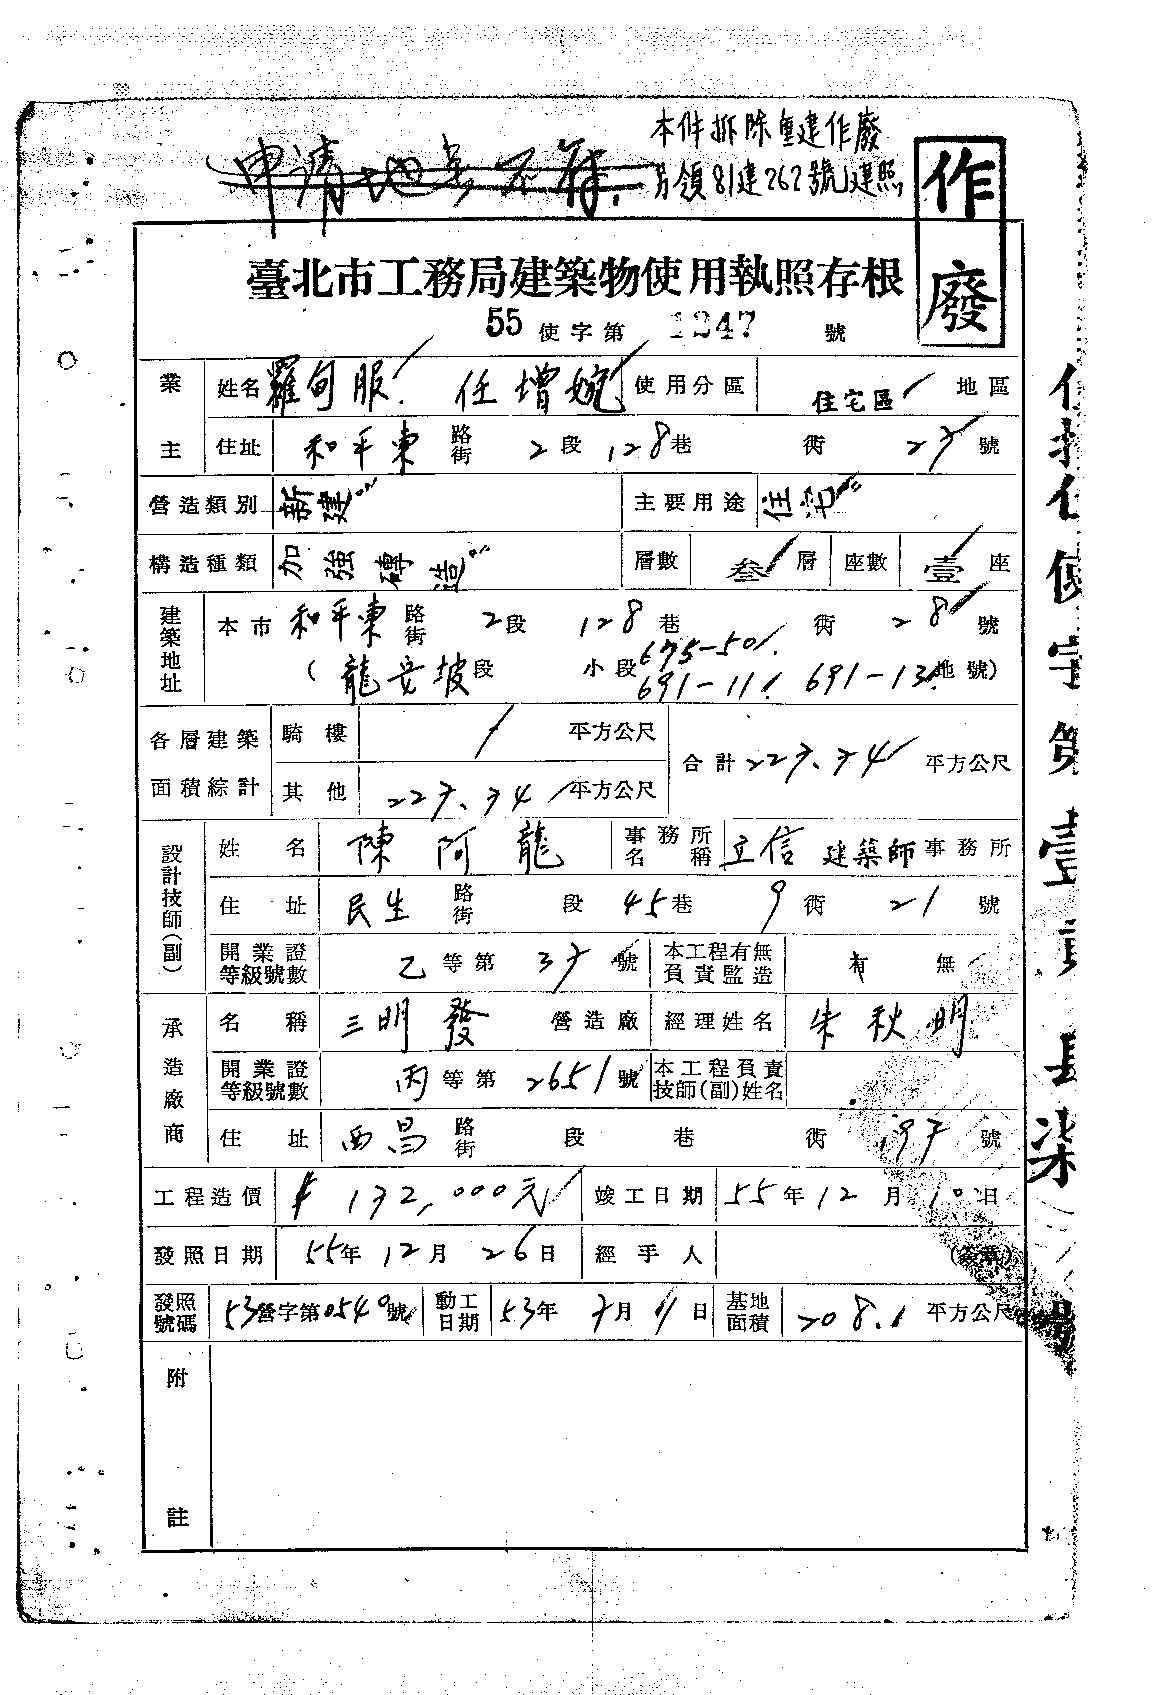 本件拆除重建作廢
另領81建262號建照
申請地号不符.
作廢
臺北市工務局建築物使用執照存根
55 使字第 1247 號
業主 姓名 羅甸服 任增婉 使用分區 住宅區 地區
住址 和平東 路街 2段 128巷 衖 23號
營造類別 新建 主要用途 住宅
構造種類 加強磚造 層數 叁層 座數 壹座
建築地址 本市 和平東 路街 2段 128巷 衖 28號
(龍安坡段 小段 675-50 691-11 691-13 地號)
各層建築面積綜計 騎樓 / 平方公尺 合計 平方公尺
其他 平方公尺
設計技師(副) 姓名 陳阿龍 事務所名稱 立信 建築師 事務所
住址 民生 路街 段 45巷 9衖 21號
開業證等級號數 乙等第 號 本工程有無負責監造 有 無
承造廠商 名稱 三明發 營造廠 經理姓名 朱秋明
開業證等級號數 丙等第 2651號 本工程負責技師(副)姓名
住址 西昌 路街 段 巷 衖 號
工程造價 132,000元 竣工日期 55年12月10日
發照日期 55年12月26日 經手人
發照號碼 53營字第0540號 動工日期 53年 7月11日 基地面積 208.1 平方公尺
附註